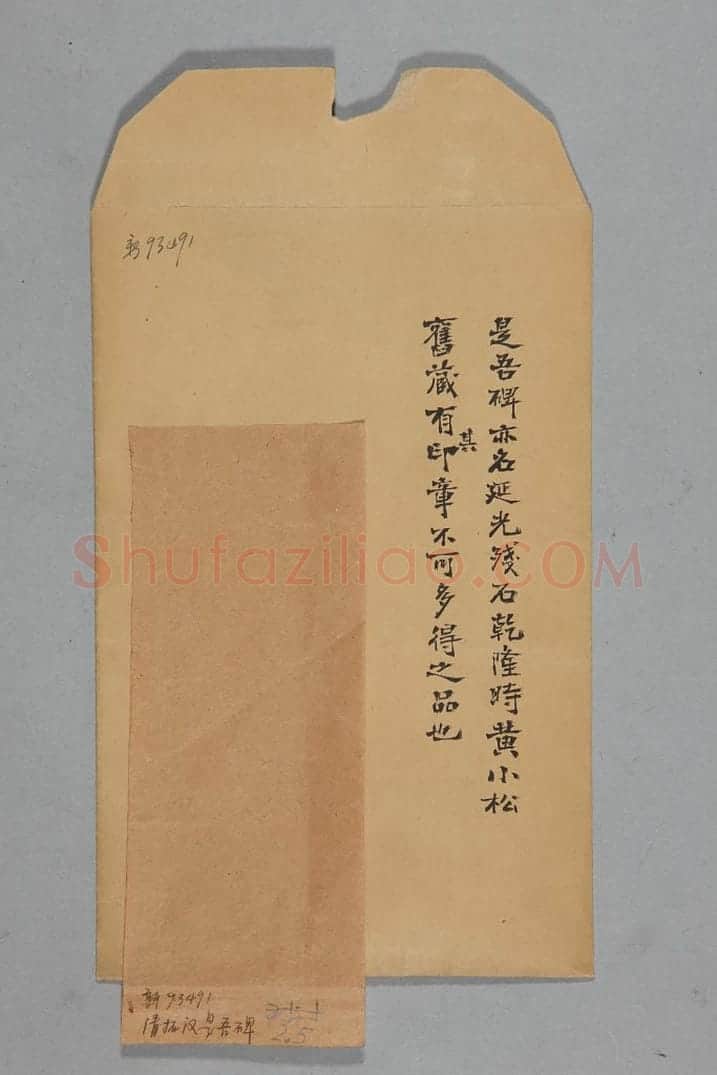 是吾碑亦名延光残石乾隆時黄小松
舊藏有其印章不可多得之品也
新93491
新93491
清拓汉是吾碑
2.5
Shufaziliao.COM